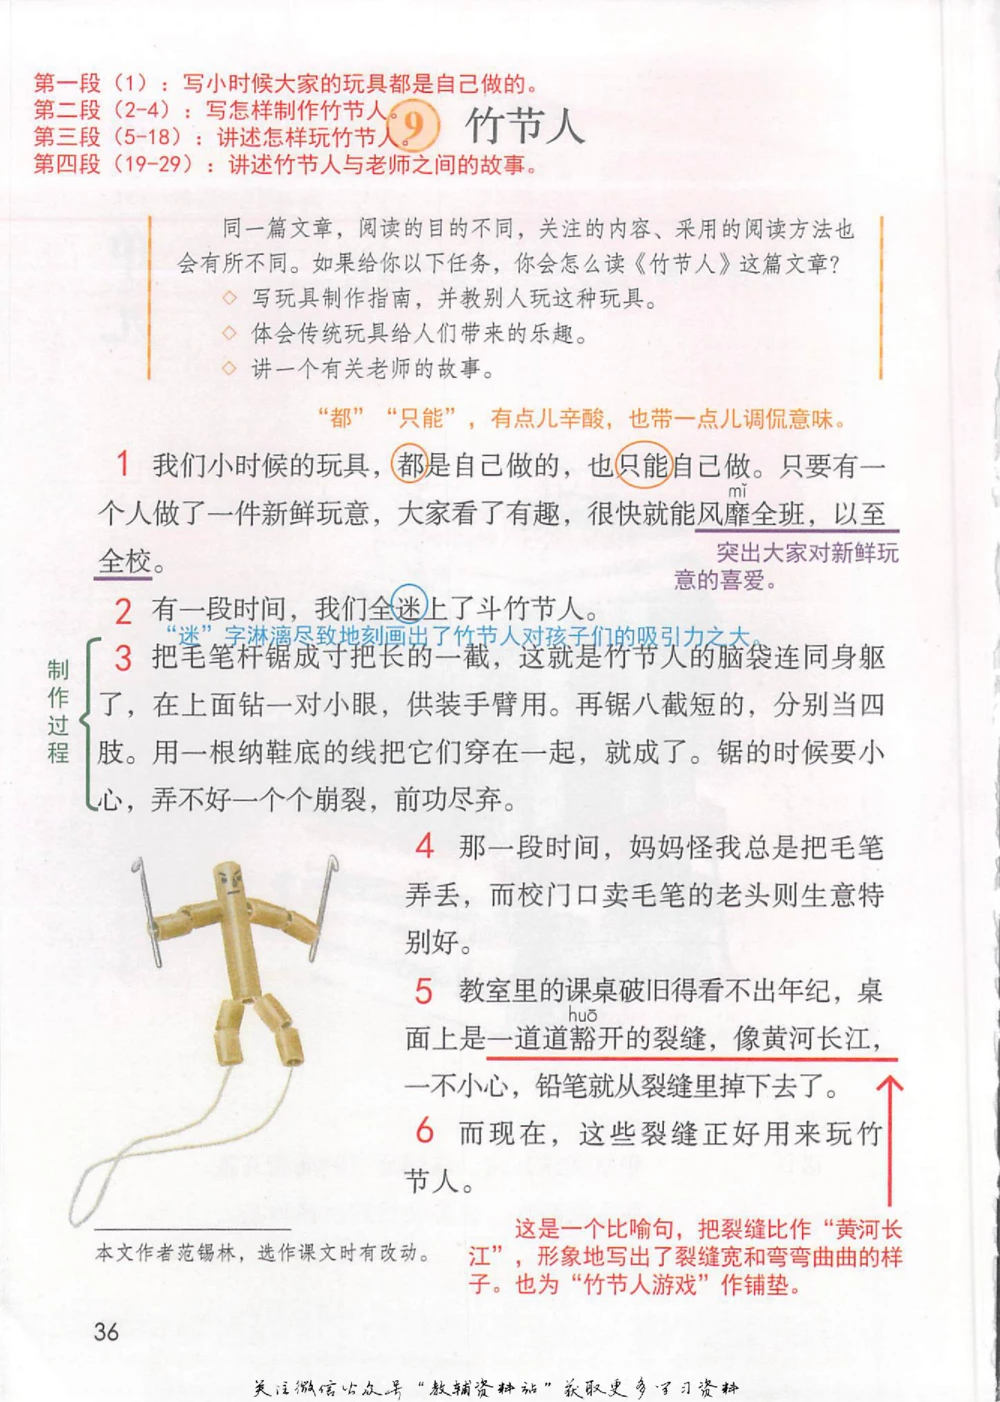 第一段（1）：写小时候大家的玩具都是自己做的。
第二段（2-4）：写怎样制作竹节人。
第三段（5-18）：讲述怎样玩竹节人。
第四段（19-29）：讲述竹节人与老师之间的故事。
9 竹节人
同一篇文章，阅读的目的不同，关注的内容、采用的阅读方法也
会有所不同。如果给你以下任务，你会怎么读《竹节人》这篇文章？
◇ 写玩具制作指南，并教别人玩这种玩具。
◇ 体会传统玩具给人们带来的乐趣。
◇ 讲一个有关老师的故事。
“都”“只能”，有点儿辛酸，也带一点儿调侃意味。
1 我们小时候的玩具，都是自己做的，也只能自己做。只要有一
mǐ
个人做了一件新鲜玩意，大家看了有趣，很快就能风靡全班，以至
全校。
突出大家对新鲜玩
意的喜爱。
2 有一段时间，我们全迷上了斗竹节人。
“迷”字淋漓尽致地刻画出了竹节人对孩子们的吸引力之大。
制作过程
3 把毛笔杆锯成寸把长的一截，这就是竹节人的脑袋连同身躯
了，在上面钻一对小眼，供装手臂用。再锯八截短的，分别当四
肢。用一根纳鞋底的线把它们穿在一起，就成了。锯的时候要小
心，弄不好一个个崩裂，前功尽弃。
4 那一段时间，妈妈怪我总是把毛笔
弄丢，而校门口卖毛笔的老头则生意特
别好。
5 教室里的课桌破旧得看不出年纪，桌
huō
面上是一道道豁开的裂缝，像黄河长江，
一不小心，铅笔就从裂缝里掉下去了。
6 而现在，这些裂缝正好用来玩竹
节人。
这是一个比喻句，把裂缝比作“黄河长
江”，形象地写出了裂缝宽和弯弯曲曲的样
子。也为“竹节人游戏”作铺垫。
本文作者范锡林，选作课文时有改动。
36
关注微信公众号“教辅资料站”获取更多学习资料